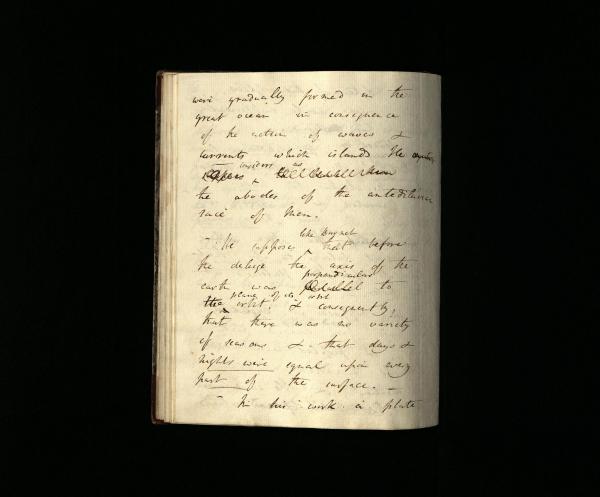 were gradually formed in the
great ocean in consequence
of the action of waves &
currents which islands He
considers as
the abodes of the antediluvian
race of Men.
like Burnet
- He supposes that before
the deluge the axis of the
perpendicular
earth was parallel to
plane of its orbit
the orbit. & consequently,
that there was no variety
of seasons & that days &
nights were equal upon every
part of the surface. -
- In his work a plate